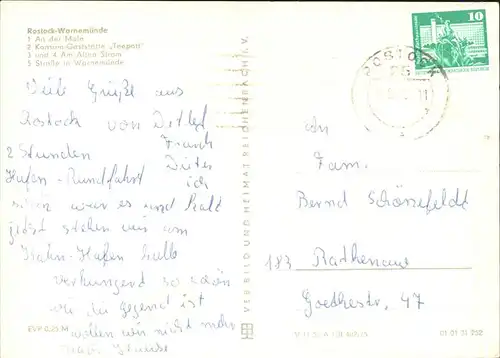 Rostock-Warnemünde
1 An der Mole
2 Konsum-Gaststätte „Teepott"
3 und 4 Am Alten Strom
5 Straße in Warnemünde
Viele Grüße aus
Rostock von Detlef
Frank
2 Stunden Dieter
Hafen-Rundfahrt ich
schön war es und kalt
jetzt stehen wir am
Kahn-Hafen halb
verhungert so schön
wie die Gegend ist
wollen wir nicht mehr
nach Hause
EVP 0,25 M
VEB BILD UND HEIMAT REICHENBACH I. V.
10
ROSTOCK
25
An
Fam.
Bernd Schönefeldt
183 Rathenow
Goethestr. 47
01 01 31 252